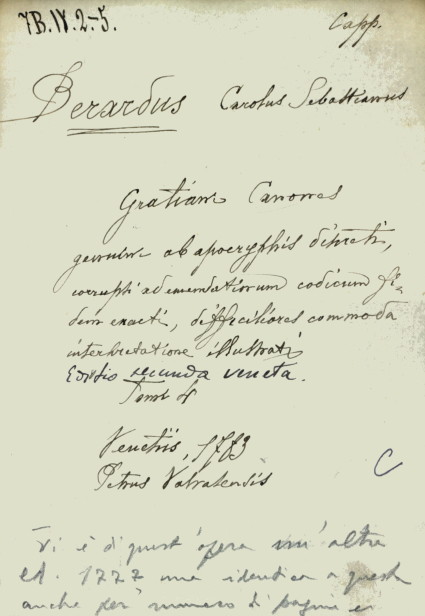 7B.IV.2-5.
Capp.
Berardus Carolus Sebastianus
Gratiani Canones
genuini ab apocryphis discreti,
corrupti ad emendatiorum codicum fi-
dem exacti, difficiliores commoda
interpretatione illustrati
Editio secunda veneta.
Tomi 4
Venetiis, 1783
Petrus Valvatensis
C
Vi è di quest'opera un'altra
ed. 1777 una identica a questa
anche per numero di pagine e